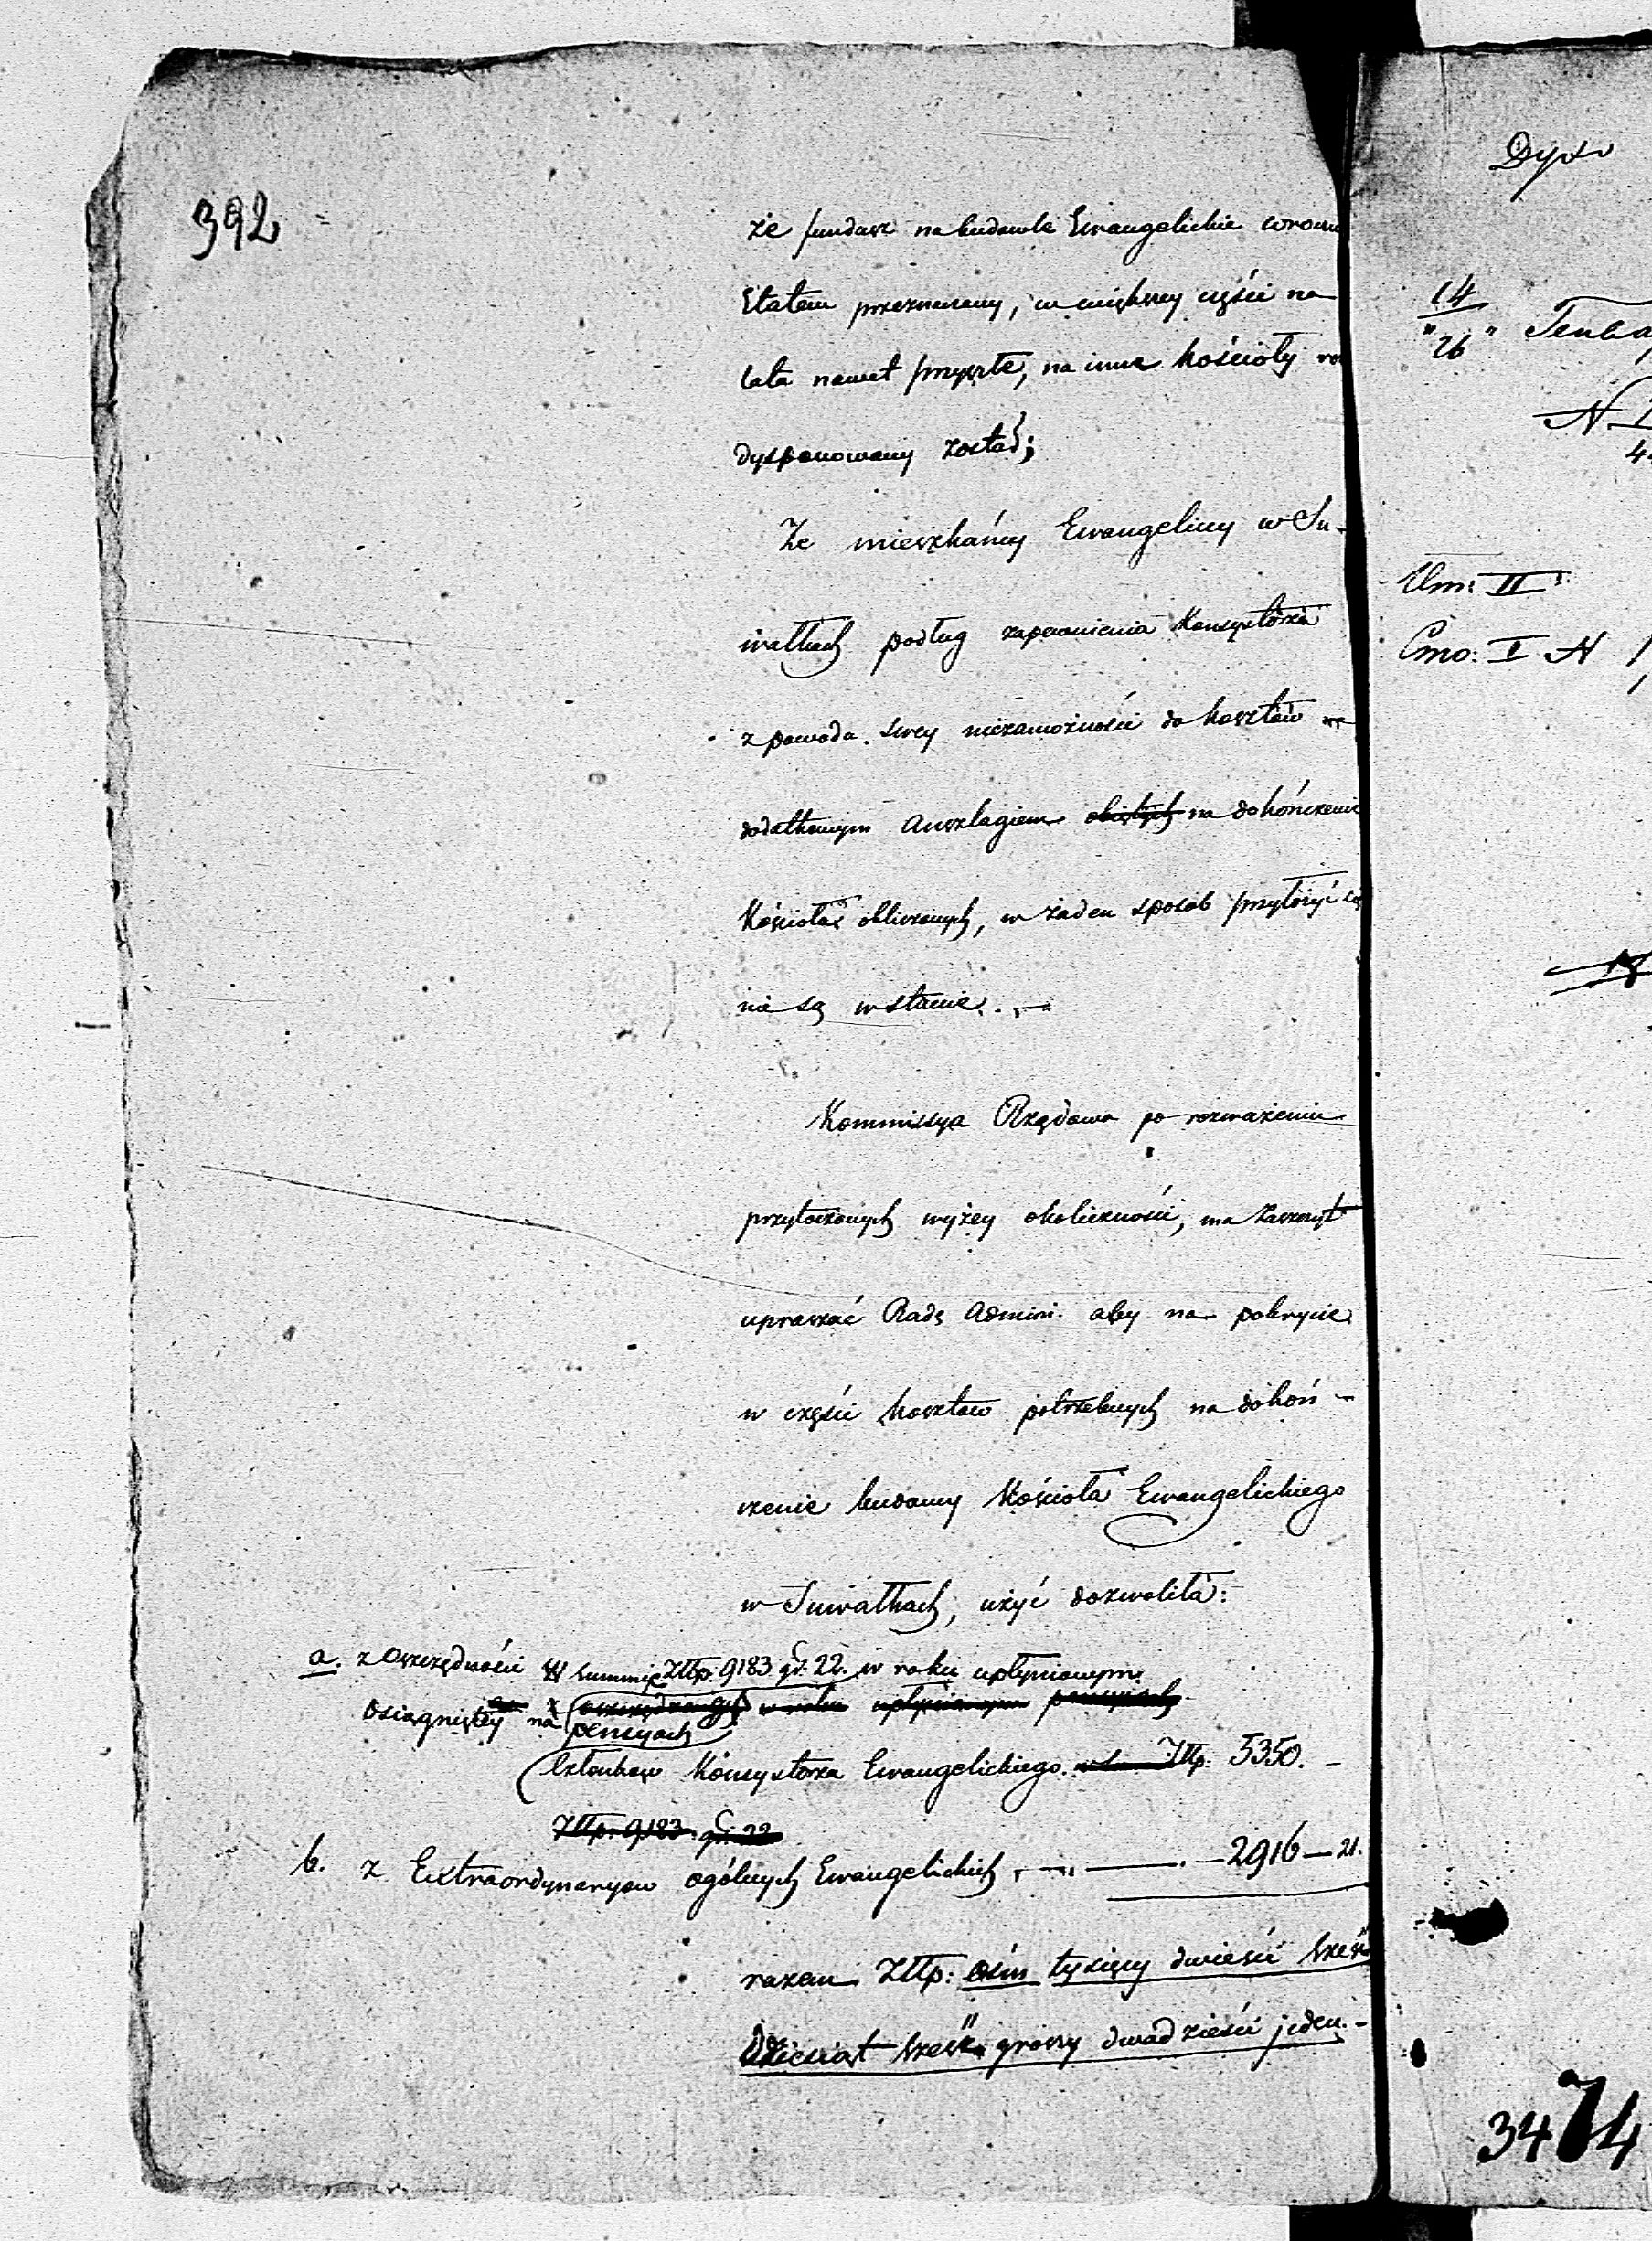 392
że fundusz na budowle Ewangelickie
Etatem przeznaczony, w większey części na
lata nawet przyszłe, na inne kościoły
dysponowany został;
Że mieszkańcy Ewangelicy w Su-
wałkach podług zapewnienia Konsystorza
z powodu swey niezamożności do kosztów
dodatkowym Anszlagiem objętych na dokończenie
Kościoła obliczonych, w żaden sposób przyłożyć się
nie są w stanie. —
Kommissya Rządowa po rozważeniu
przytoczonych wyżey okoliczności, ma zaszczyt
upraszać Radę Admini. aby na pokrycie
w części kosztów potrzebnych na dokoń-
czenie budowy Kościoła Ewangelickiego
w Suwałkach, użyć dozwoliła:
a. z Oszczędności w summie Złtp. 9183 gr. 22. w roku upłynionym
osiągniętey na pensyach
Członków Konsystorza Ewangelickiego Złtp. 5350. -
Złtp. 9183 gr. 22
b. z Extraordynaryow ogólnych Ewangelickich — 2916 — 21.
razem Złtp: ośm tysięcy dwieście sześć
dziesiąt sześć groszy dwadzieścia jeden. -
14
26
Um: II
Cmo: I N
3474